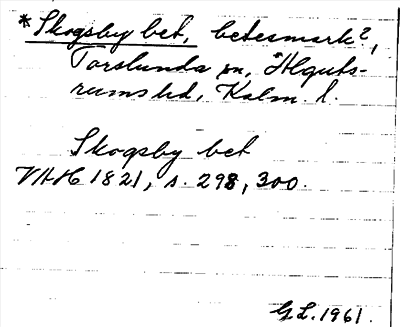 *Skogsby bet, betesmark?,
Torslunda sn, Alguts-
rums hd, Kalm. l.
Skogsby bet
VAH 1821, s. 298, 300.
G.L. 1961.